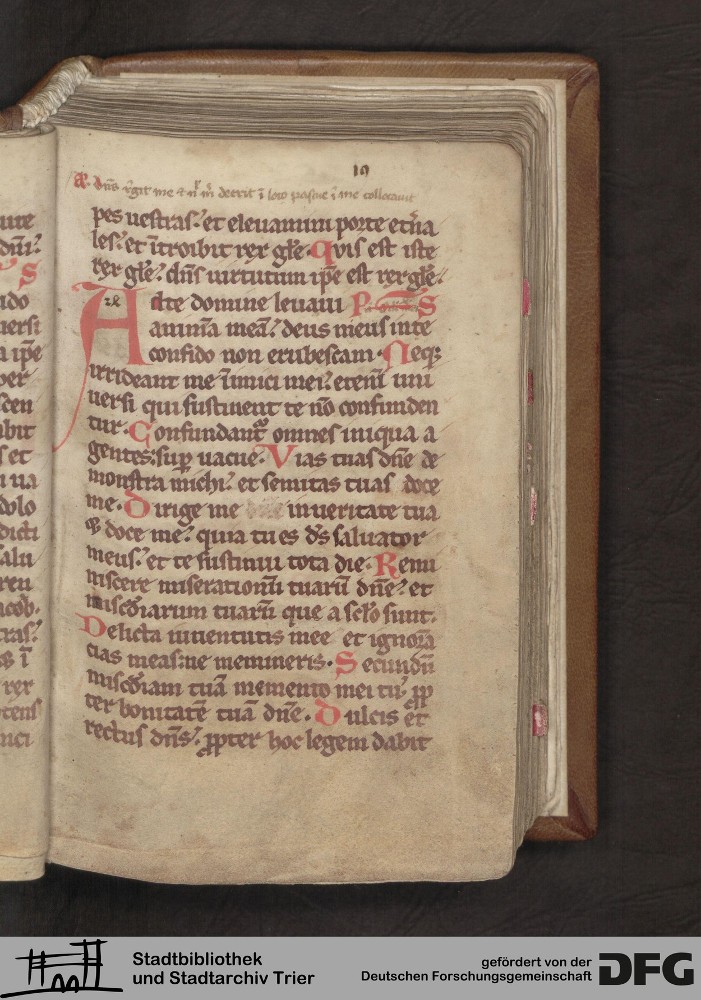 19
a. dns regit me et nl m deerit i loco pascue i me collocavit
pes uestras. et eleuamini porte etna
les. et itroibit rex gle. Quis est iste
rex gle. dns uirtutum ipe est rex gle.
Ad te domine leuaui PS
animā meā. deus meus in te
confido non erubescam. Neq
irrideant me inimici mei. eteni uni
uersi qui sustinent te nō confunden
tur. Confundant omnes iniqua a
gentes. sup uacue. Vias tuas dne de
monstra michi. et semitas tuas doce
me. Dirige me in ueritate tua
et doce me. quia tu es ds saluator
meus. et te sustinui tota die. Remi
niscere miserationū tuarū dne. et
misciarum tuarū que a sclo sunt.
Delicta iuuentutis mee et ignorā
cias meas. ne memineris. Secundū
misciam tuā memento mei tu. pp
ter bonitatē tuā dne. Dulcis et
rectus dns. ppter hoc legem dabit
Stadtbibliothek
und Stadtarchiv Trier
gefördert von der
Deutschen Forschungsgemeinschaft
DFG